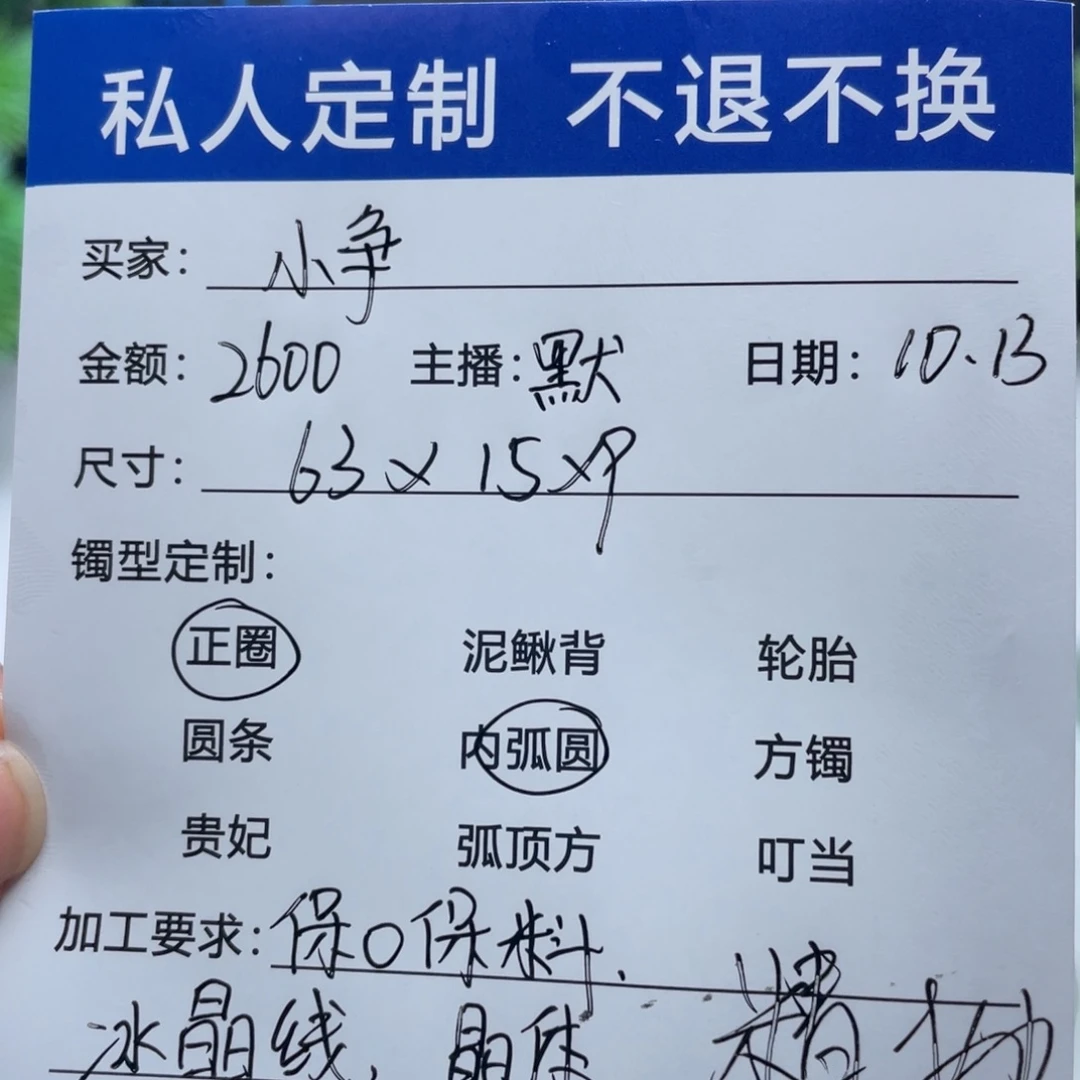 私人定制 不退不换
买家： 小争
金额：2600 主播：默 日期：10.13
尺寸： 63×15×9
镯型定制：
正圈 泥鳅背 轮胎
圆条 内弧圆 方镯
贵妃 弧顶方 叮当
加工要求：保O保料.
冰晶线, 晶体 精抛